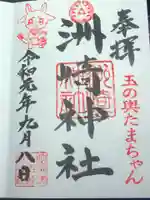 奉拝
玉の輿たまちゃん
洲崎神社
令和元年九月八日